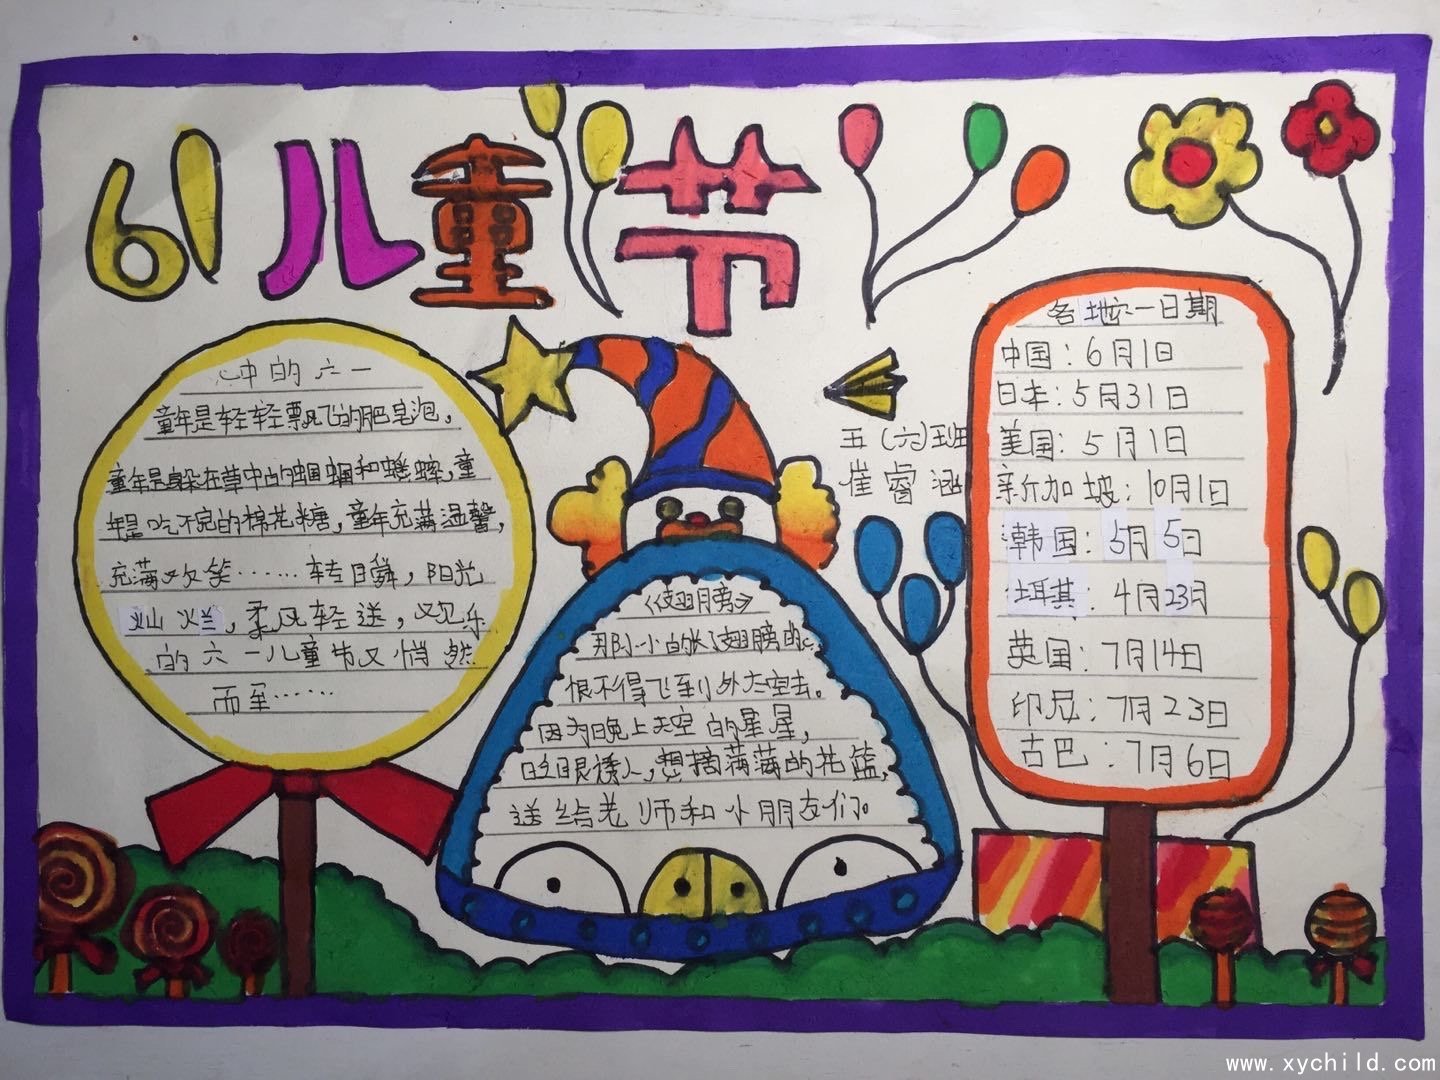 61儿童节
心中的六一
童年是轻轻飘飞的肥皂泡，
童年是躲在草中的蝈蝈和蟋蟀，童
年是吃不完的棉花糖，童年充满温馨，
充满欢笑……转目瞬，阳光
灿烂，柔风轻送，欢乐
的六一儿童节又悄然
而至……
《翅膀》
小小的我长了翅膀，
恨不得飞到外太空去。
因为晚上天空的星星，
眨眼诱人，想摘满满的花篮，
送给老师和小朋友们。
五(六)班
崔睿涵
各地六一日期
中国：6月1日
日本：5月31日
美国：5月1日
新加坡：10月1日
韩国：5月5日
土耳其：4月23日
英国：7月14日
印尼：7月23日
古巴：7月6日
www.xychild.com